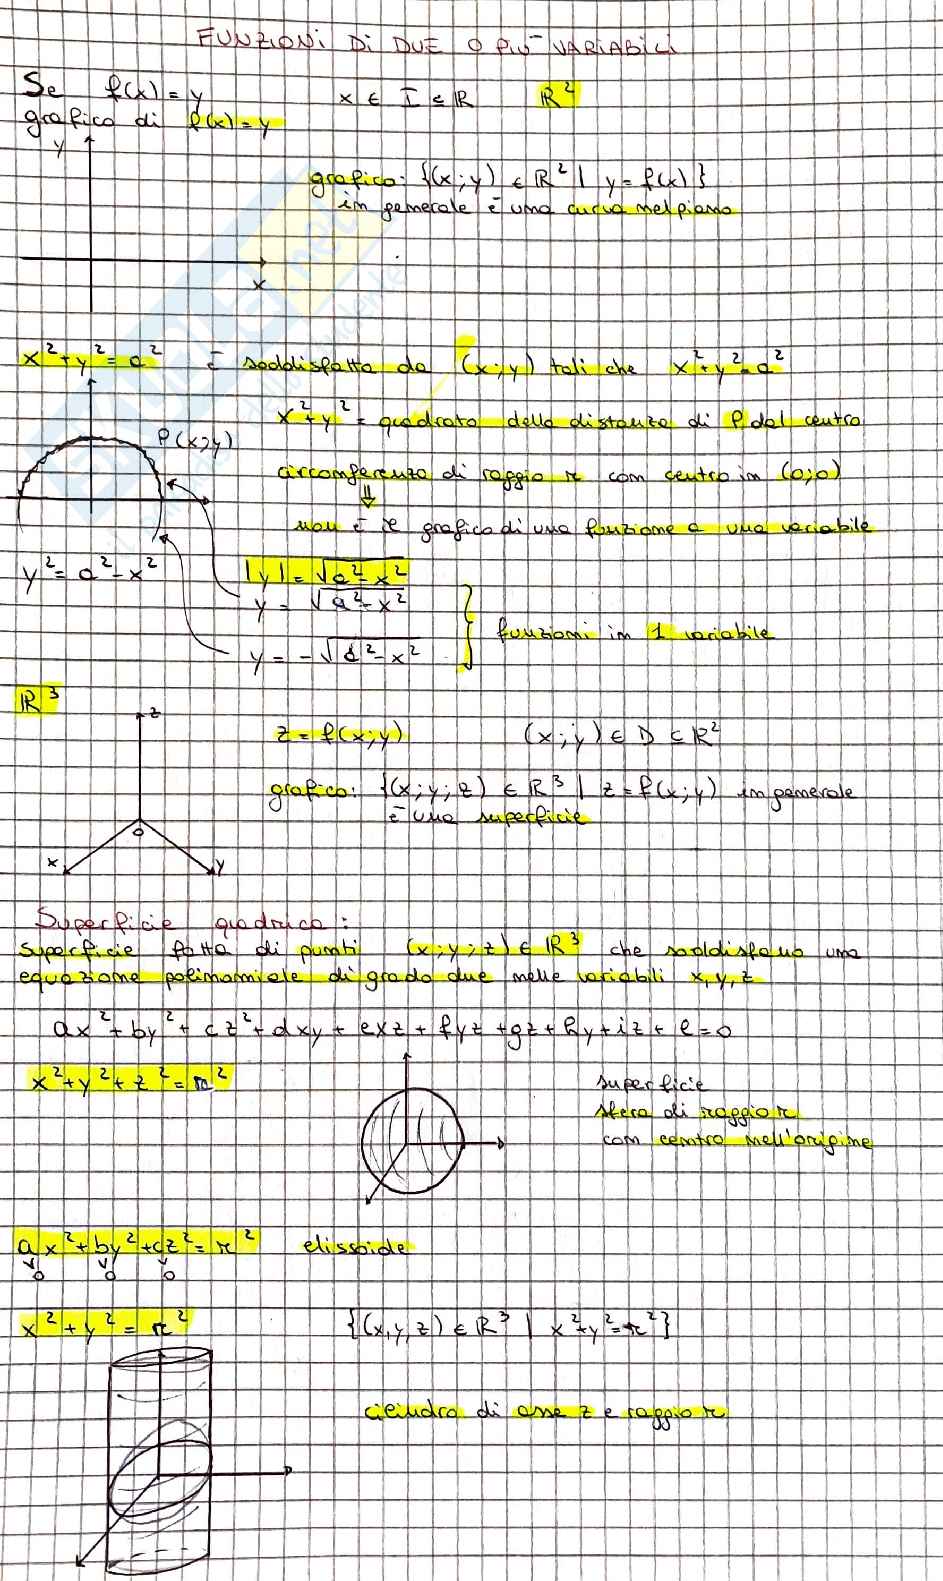 FUNZIONI DI DUE O PIÙ VARIABILI
Se f(x) = y x ∈ I ⊆ ℝ ℝ²
grafico di f(x) = y
y
grafico: {(x;y) ∈ ℝ² | y = f(x)}
in generale è una curva nel piano
x
x² + y² = a² È soddisfatta da (x;y) tali che x² + y² = a²
x² + y² = quadrato della distanza di P dal centro
P(x;y)
circonferenza di raggio r con centro in (0;0)
⇓
non è il grafico di una funzione a una variabile
y² = a² - x² |y| = √a² - x²
y = √a² - x²
funzioni in 1 variabile
y = -√a² - x²
ℝ³
z
z = f(x;y) (x;y) ∈ D ⊆ ℝ²
grafico: {(x;y;z) ∈ ℝ³ | z = f(x;y) in generale
è una superficie
0
x y
Superficie quadrica:
Superficie fatta di punti (x;y;z) ∈ ℝ³ che soddisfano una
equazione polinomiale di grado due nelle variabili x,y,z
ax² + by² + cz² + dxy + exz + fyz + gz + hy + iz + l = 0
x² + y² + z² = r²
superficie
sfera di raggio r
con centro nell'origine
ax² + by² + cz² = r² elissoide
v v v
0 0 0
x² + y² = r² {(x,y,z) ∈ ℝ³ | x² + y² = r²}
cilindro di asse z e raggio r